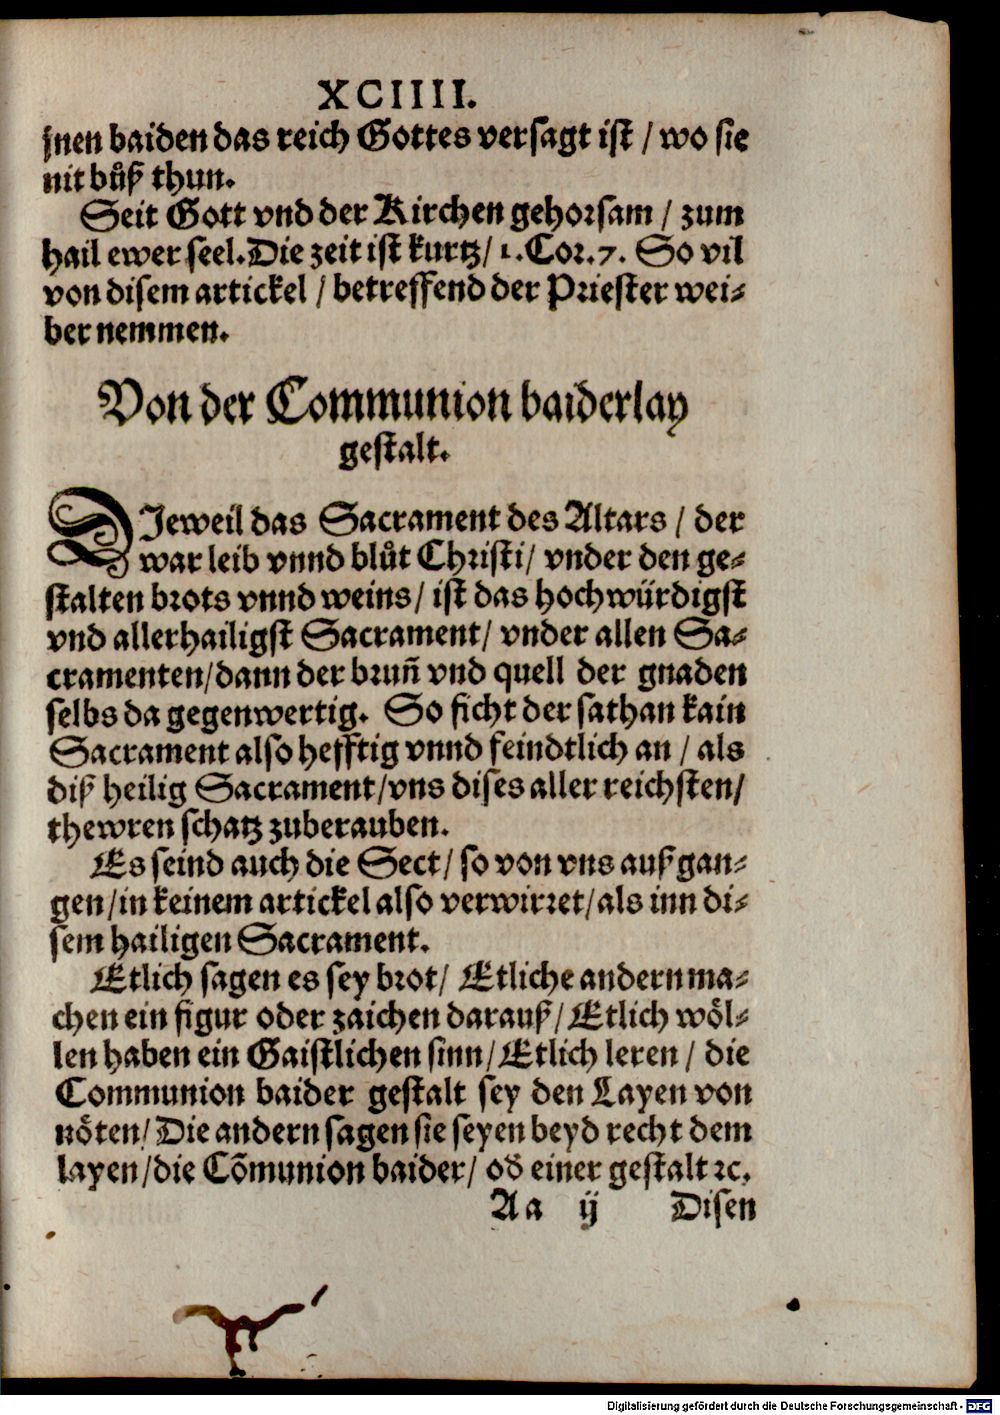 XCIIII.
jnen baiden das reich Gottes versagt ist / wo sie
nit bůß thun.
Seit Gott vnd der Kirchen gehorsam / zum
hail ewer seel. Die zeit ist kurtz / 1. Cor. 7. So vil
von disem artickel / betreffend der Priester wei⸗
ber nemmen.
Von der Communion baiderlay
gestalt.
DJeweil das Sacrament des Altars / der
war leib vnnd blůt Christi / vnder den ge⸗
stalten brots vnnd weins / ist das hochwürdigst
vnd allerhailigst Sacrament / vnder allen Sa⸗
cramenten / dann der bruñ vnd quell der gnaden
selbs da gegenwertig. So ficht der sathan kain
Sacrament also hefftig vnnd feindtlich an / als
diß heilig Sacrament / vns dises aller reichsten /
thewren schatz zuberauben.
Es seind auch die Sect / so von vns außgan⸗
gen / in keinem artickel also verwirret / als inn di⸗
sem hailigen Sacrament.
Etlich sagen es sey brot / Etliche andern ma⸗
chen ein figur oder zaichen darauß / Etlich wöl⸗
len haben ein Gaistlichen sinn / Etlich leren / die
Communion baider gestalt sey den Layen von
nöten / Die andern sagen sie seyen beyd recht dem
layen / die Cõmunion baider / od einer gestalt ⁊c.
Aa ij Disen
Digitalisierung gefördert durch die Deutsche Forschungsgemeinschaft - DFG